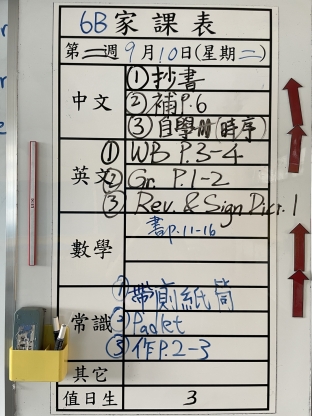 6B 家課表
第二週 9月10日(星期二)
中文
①抄書
②補P.6
③自學冊(時序)
英文
① WB P.3-4
② Gr. P.1-2
③ Rev. & Sign Dict. 1
數學
書p.11-16
常識
①帶廁紙筒
②Padlet
③作P.2-3
其它
值日生 3